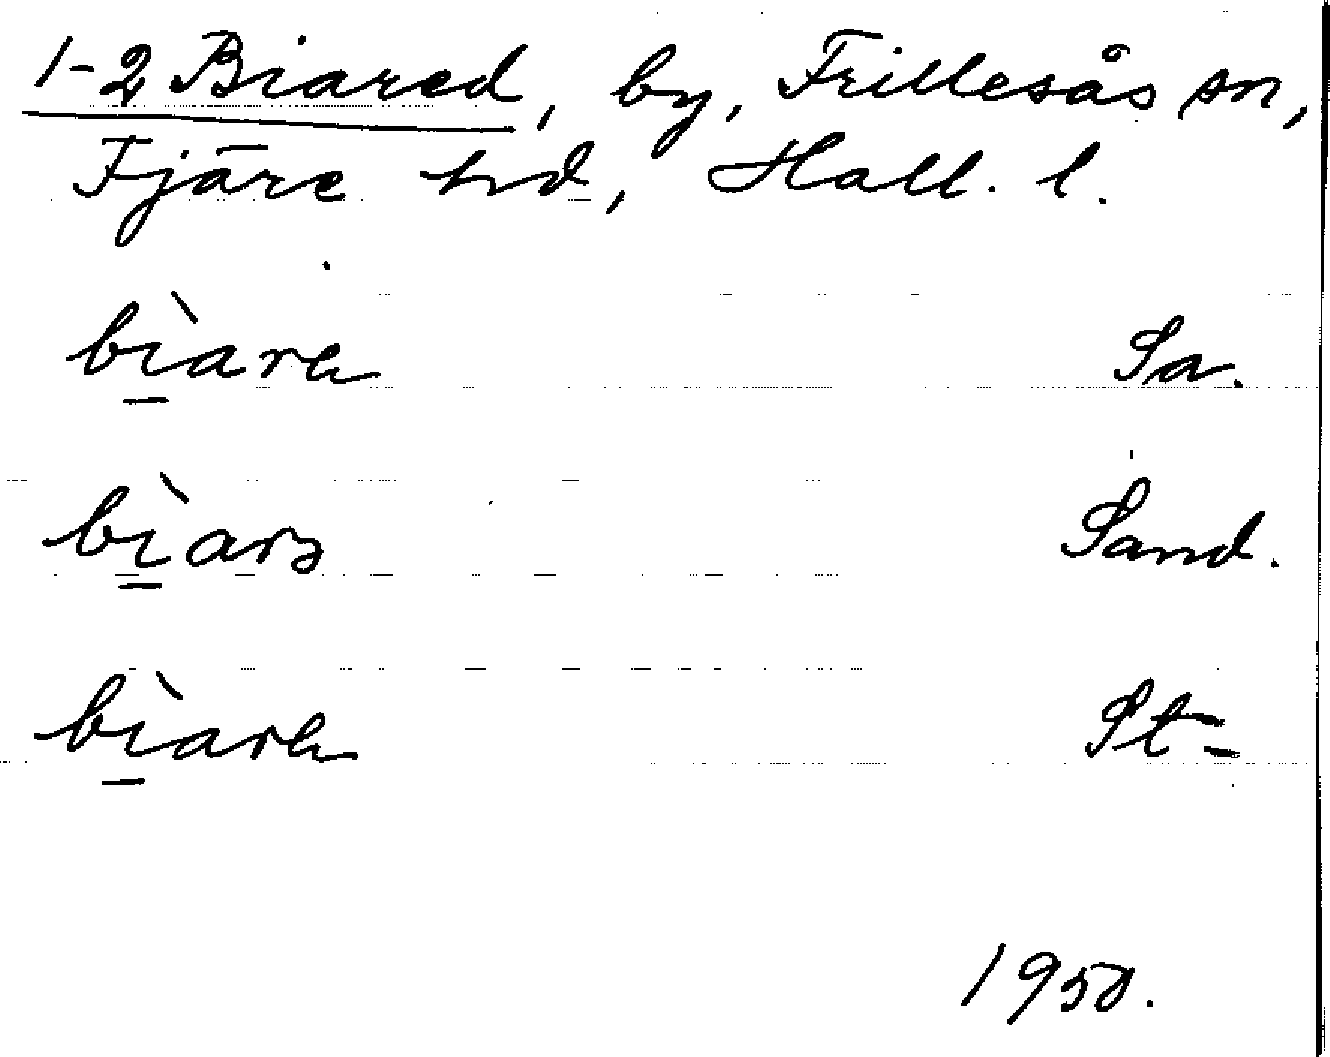 1-2 Biared, by, Frillesås sn,
Fjäre hd, Hall. l.
Sa.
Sand.
St-
1950.